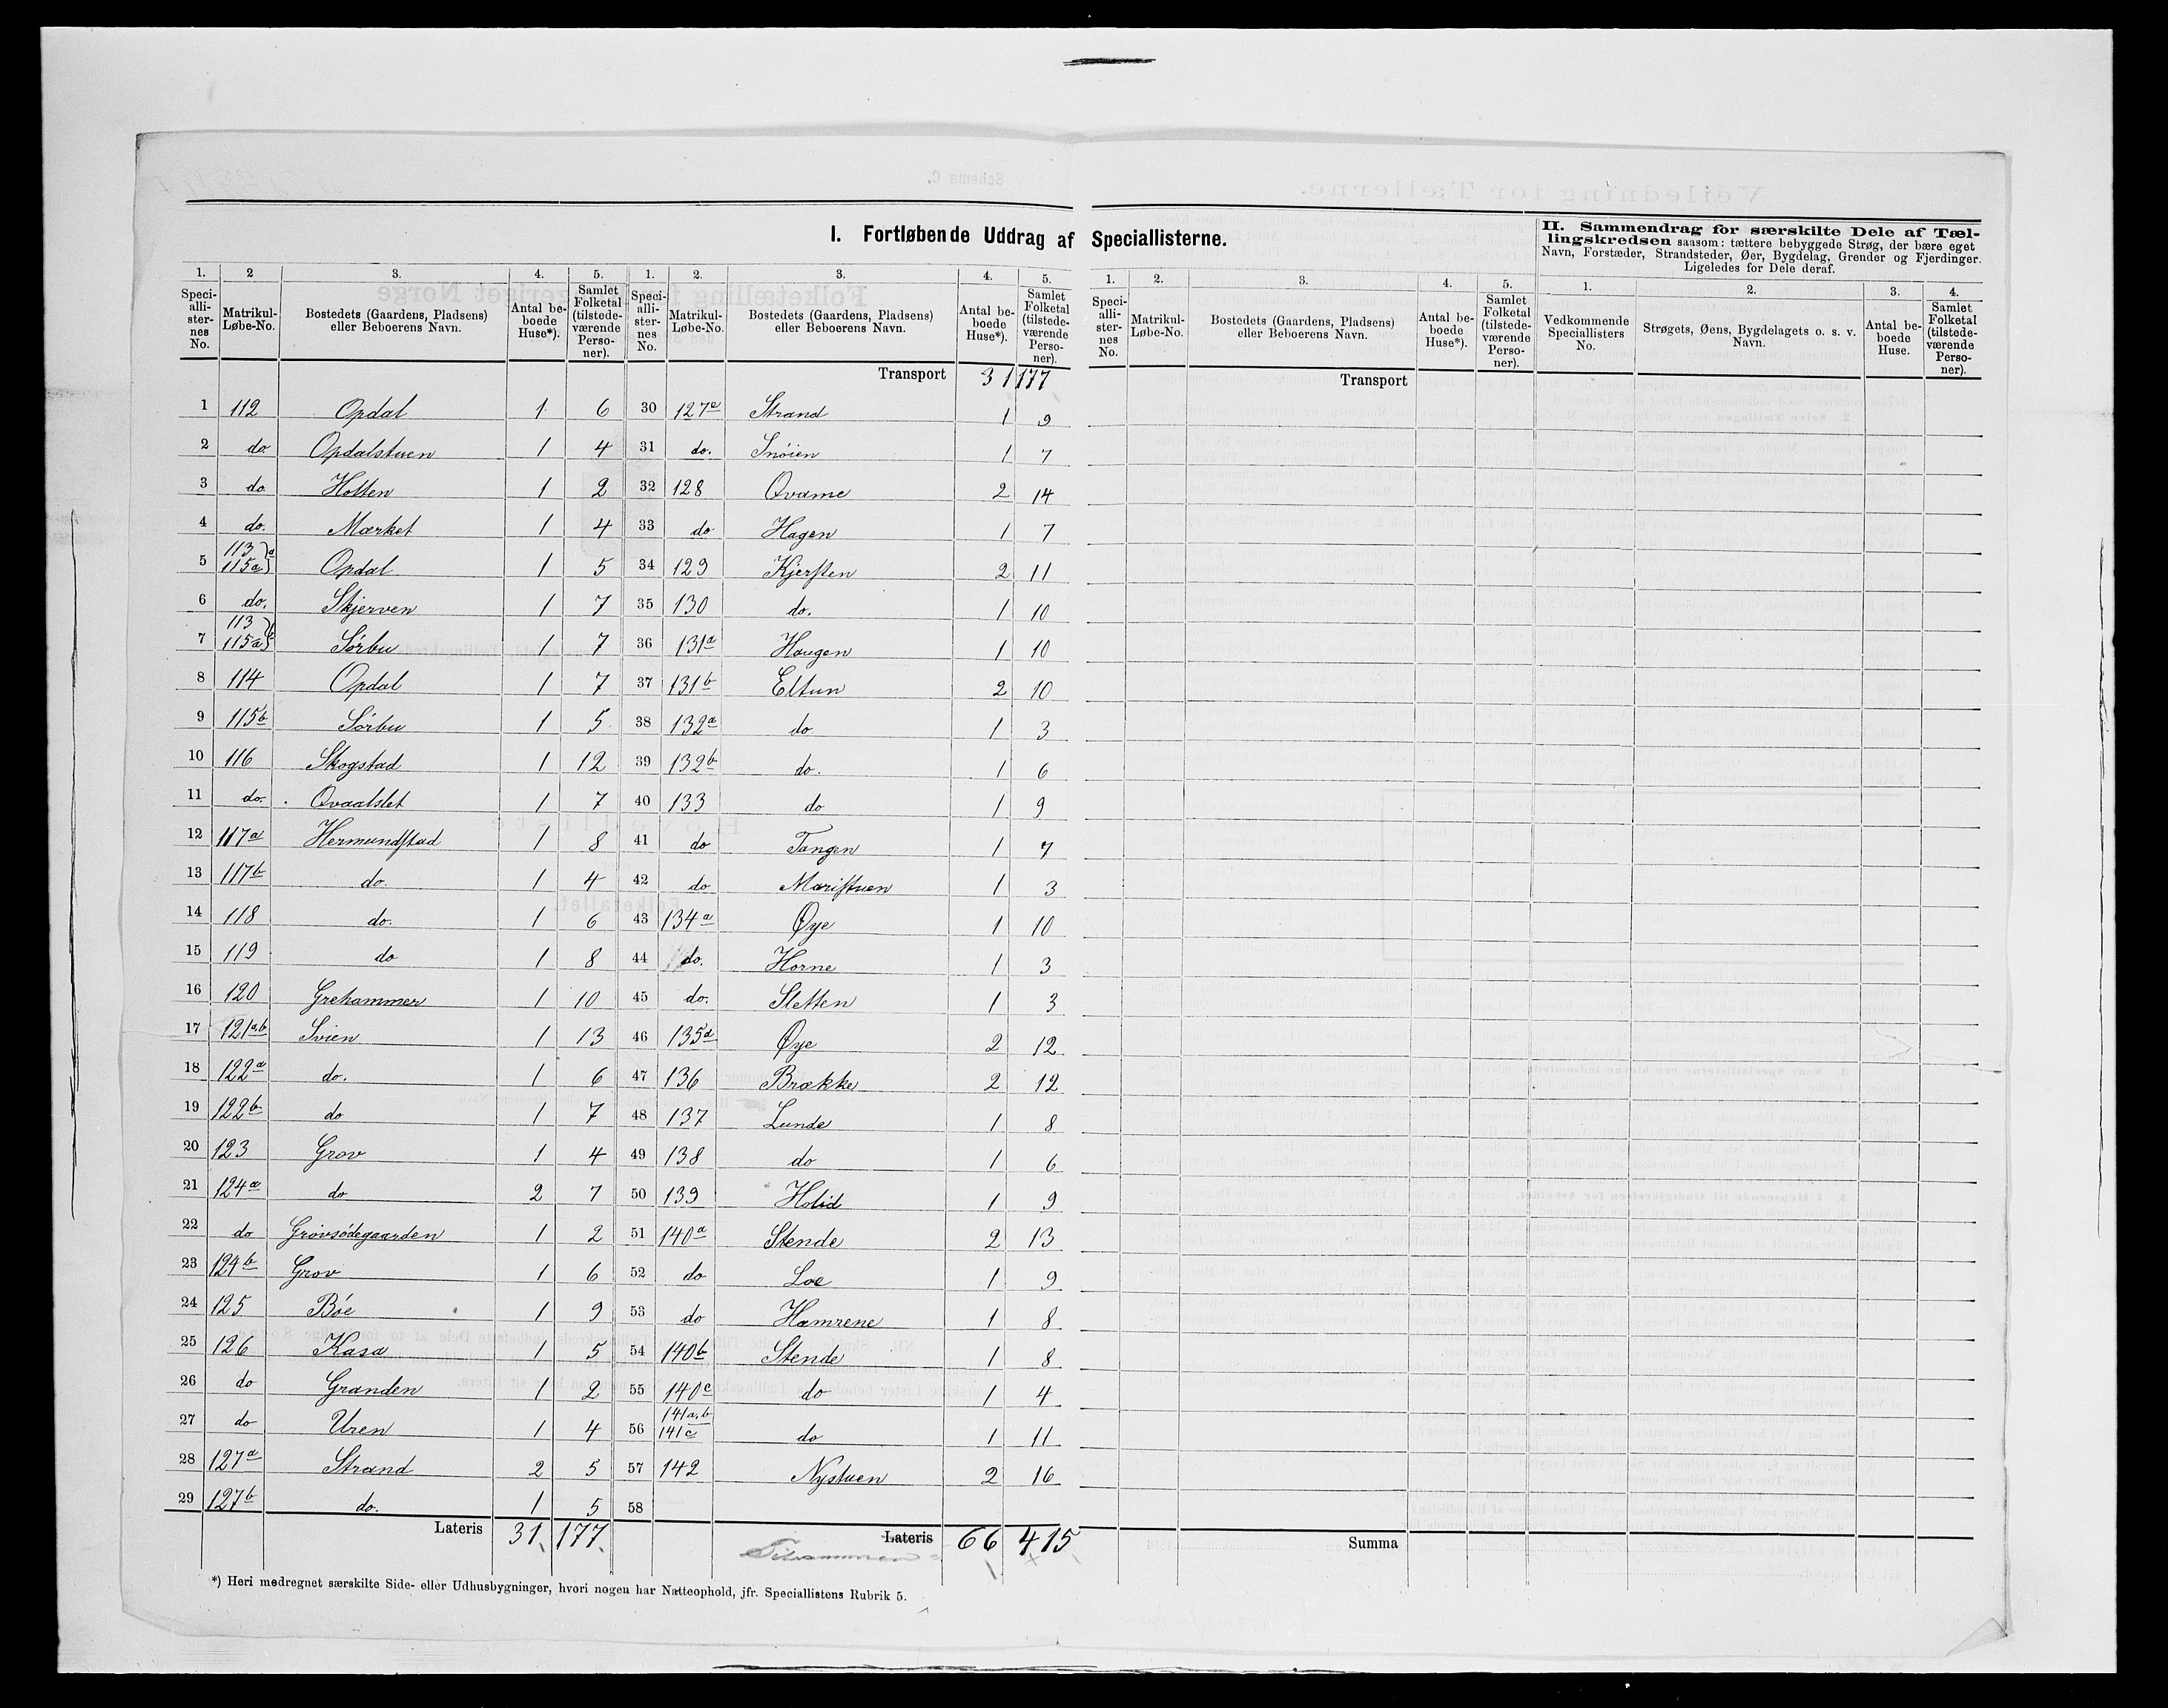 I. Fortløbende Uddrag af Speciallisterne.
II. Sammendrag for særskilte Dele af Tællingskredsen saasom: tættere bebyggede Strøg, der bære eget Navn, Forstæder, Strandsteder, Øer, Bygdelag, Grender og Fjerdinger. Ligeledes for Dele deraf.
1. 2 3. 4. 5. 1. 2. 3. 4. 5. 1. 2. 3. 4. 5. 1. 2. 3. 4.
Speciallisternes No. Matrikul-Løbe-No. Bostedets (Gaardens, Pladsens) eller Beboerens Navn. Antal beboede Huse*). Samlet Folketal (tilstedeværende Personer).
Speciallisternes No. Matrikul-Løbe-No. Bostedets (Gaardens, Pladsens) eller Beboerens Navn. Antal beboede Huse*). Samlet Folketal (tilstedeværende Personer).
Speciallisternes No. Matrikul-Løbe-No. Bostedets (Gaardens, Pladsens) eller Beboerens Navn. Antal beboede Huse*). Samlet Folketal (tilstedeværende Personer).
Vedkommende Speciallisters No. Strøgets, Øens, Bygdelagets o. s. v. Navn. Antal beboede Huse. Samlet Folketal (tilstedeværende Personer).
1 112 Opdal 1 6
2 do. Opdalstuen 1 4
3 do. Holten 1 2
4 do. Mærket 1 4
5 113 115a } a Opdal 1 5
6 do. Skjerven 1 7
7 113 115a } b Sørbu 1 7
8 114 Opdal 1 7
9 115b Sørbu 1 5
10 116 Skogstad 1 12
11 do. Qvaalslet 1 7
12 117a Hermundstad 1 8
13 117b do. 1 4
14 118 do. 1 6
15 119 do 1 8
16 120 Grehammer 1 10
17 121a,b Svien 1 13
18 122a do. 1 6
19 122b do 1 7
20 123 Grov 1 4
21 124a do 2 7
22 do Grovsødegaarden 1 2
23 124b Grov 1 6
24 125 Bøe 1 9
25 126 Kasa 1 5
26 do Granden 1 2
27 do Uren 1 4
28 127a Strand 2 5
29 127b do. 1 5
Lateris 31 177
Transport 31 177
30 127a Strand 1 9
31 do. Snøien 1 7
32 128 Qvame 2 14
33 do Hagen 1 7
34 129 Kjersten 2 11
35 130 do. 1 10
36 131a Haugen 1 10
37 131b Eltun 2 10
38 132a do 1 3
39 132b do. 1 6
40 133 do 1 9
41 do Tangen 1 7
42 do Maristuen 1 3
43 134a Øye 1 10
44 do. Horne 1 3
45 do. Sletten 1 3
46 135a Øye 2 12
47 136 Brække 2 12
48 137 Lunde 1 8
49 138 do 1 6
50 139 Holid 1 9
51 140a Stende 2 13
52 do Loe 1 9
53 do Hamrene 1 8
54 140b Stende 1 8
55 140c do 1 4
56 141a,b 141c do 1 11
57 142 Nystuen 2 16
58
Lateris 66 415
Tilsammen
Transport
Summa
*) Heri medregnet særskilte Side- eller Udhusbygninger, hvori nogen har Natteophold, jfr. Speciallistens Rubrik 5.